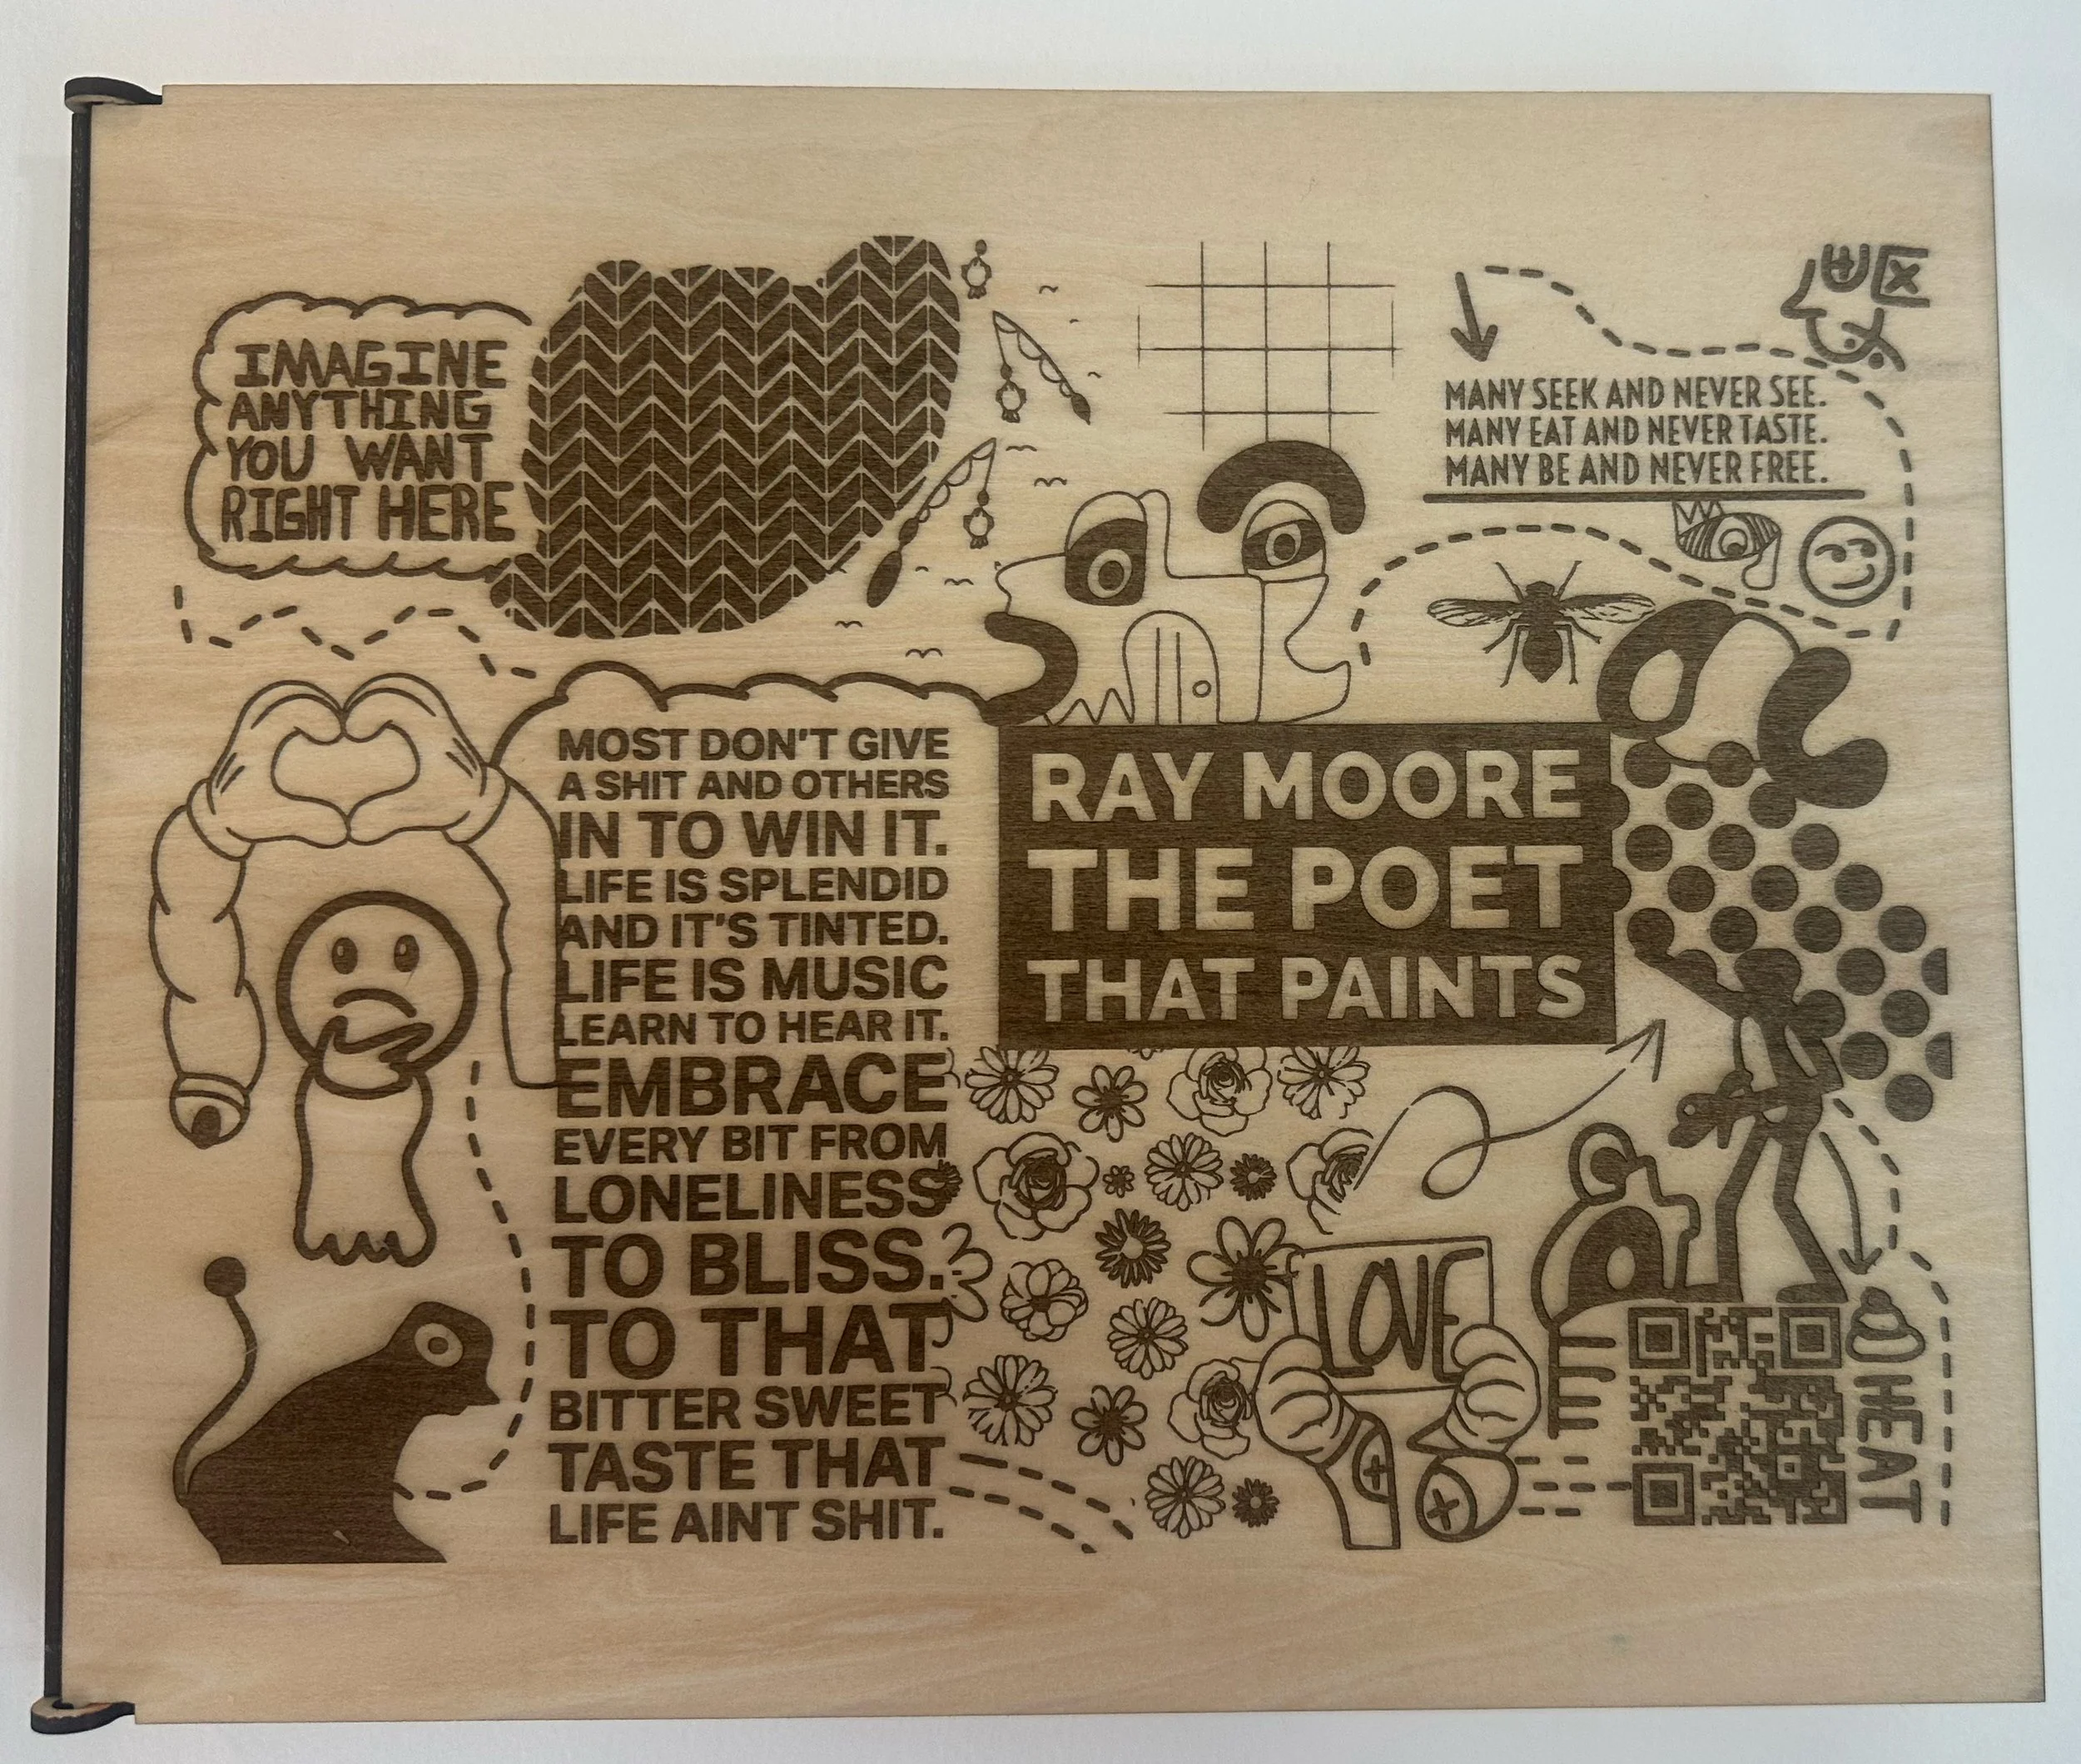 IMAGINE
ANYTHING
YOU WANT
RIGHT HERE
MANY SEEK AND NEVER SEE.
MANY EAT AND NEVER TASTE.
MANY BE AND NEVER FREE.
MOST DON'T GIVE
A SHIT AND OTHERS
IN TO WIN IT.
LIFE IS SPLENDID
AND IT'S TINTED.
LIFE IS MUSIC
LEARN TO HEAR IT.
EMBRACE
EVERY BIT FROM
LONELINESS
TO BLISS.
TO THAT
BITTER SWEET
TASTE THAT
LIFE AINT SHIT.
RAY MOORE
THE POET
THAT PAINTS
LOVE
HEAT